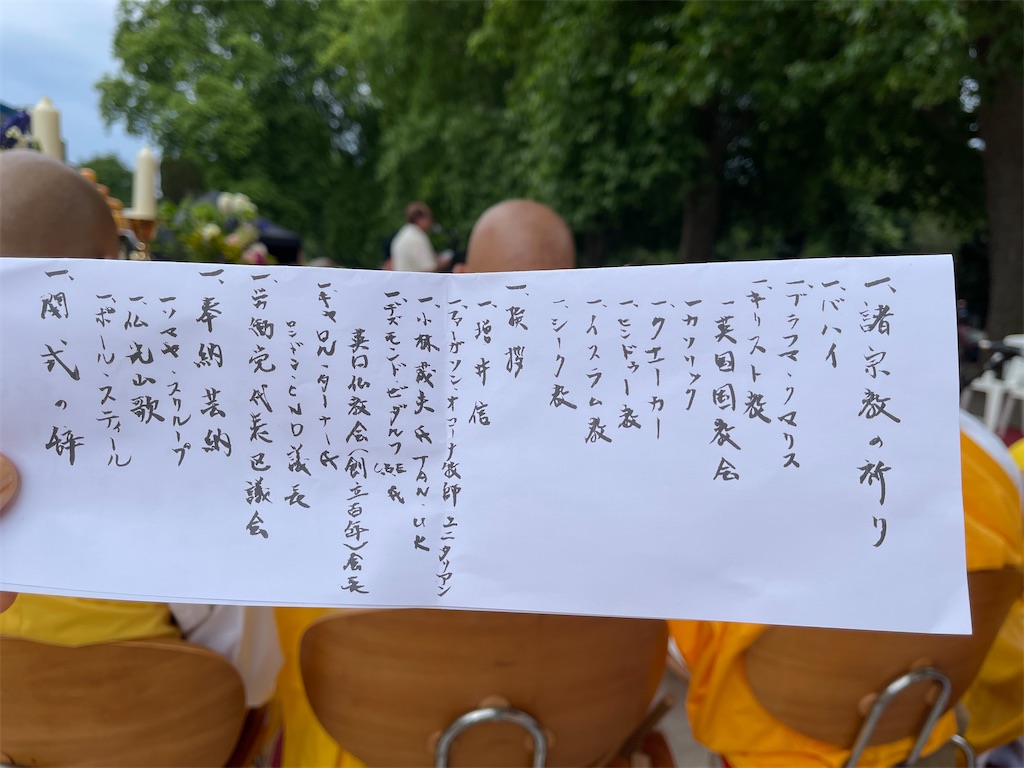 一、諸宗教の祈り
一、バハイ
一、ブラフマ・クマリス
一、キリスト教
一、英国国教会
一、カソリック
一、クエーカー
一、ヒンドゥー教
一、イスラム教
一、シーク教
一、挨拶
一、増井信
一、ファーガソン・オコーナ牧師 ユニタリアン
一、小林歳夫氏 JAN・UK
一、デズモンド・ビダルフ CBE 氏
英国仏教会(創立百年)会長
一、キャロル・ターナー氏
ロンドンCND議長
一、労働党代表区議会
一、奉納芸納
一、ソマヤ・スループ
一、仏光山歌
一、ポール・スティール
一、閉式の辞